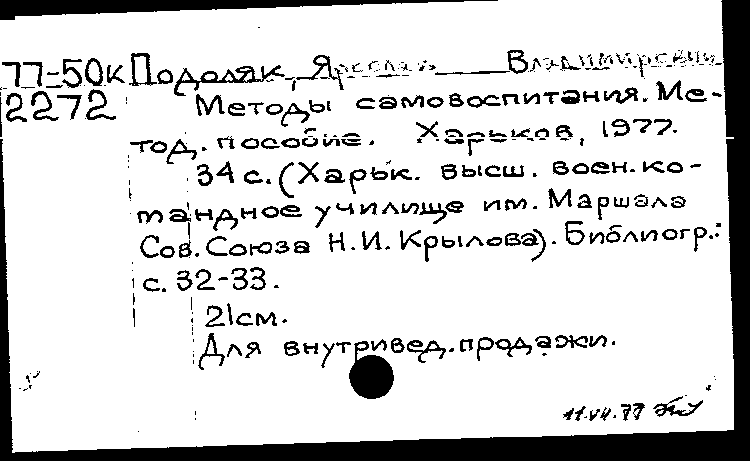 77-50к Подоляк, Ярослав Владимирович
2272 Методы самовоспитания. Ме-
тод. пособие. Харьков, 1977.
34 с. (Харьк. высш. воен. ко-
мандное училище им. Маршала
Сов. Союза Н.И. Крылова). Библиогр.:
с. 32-33.
21см.
Для внутривед. продажи.
11.VII.77